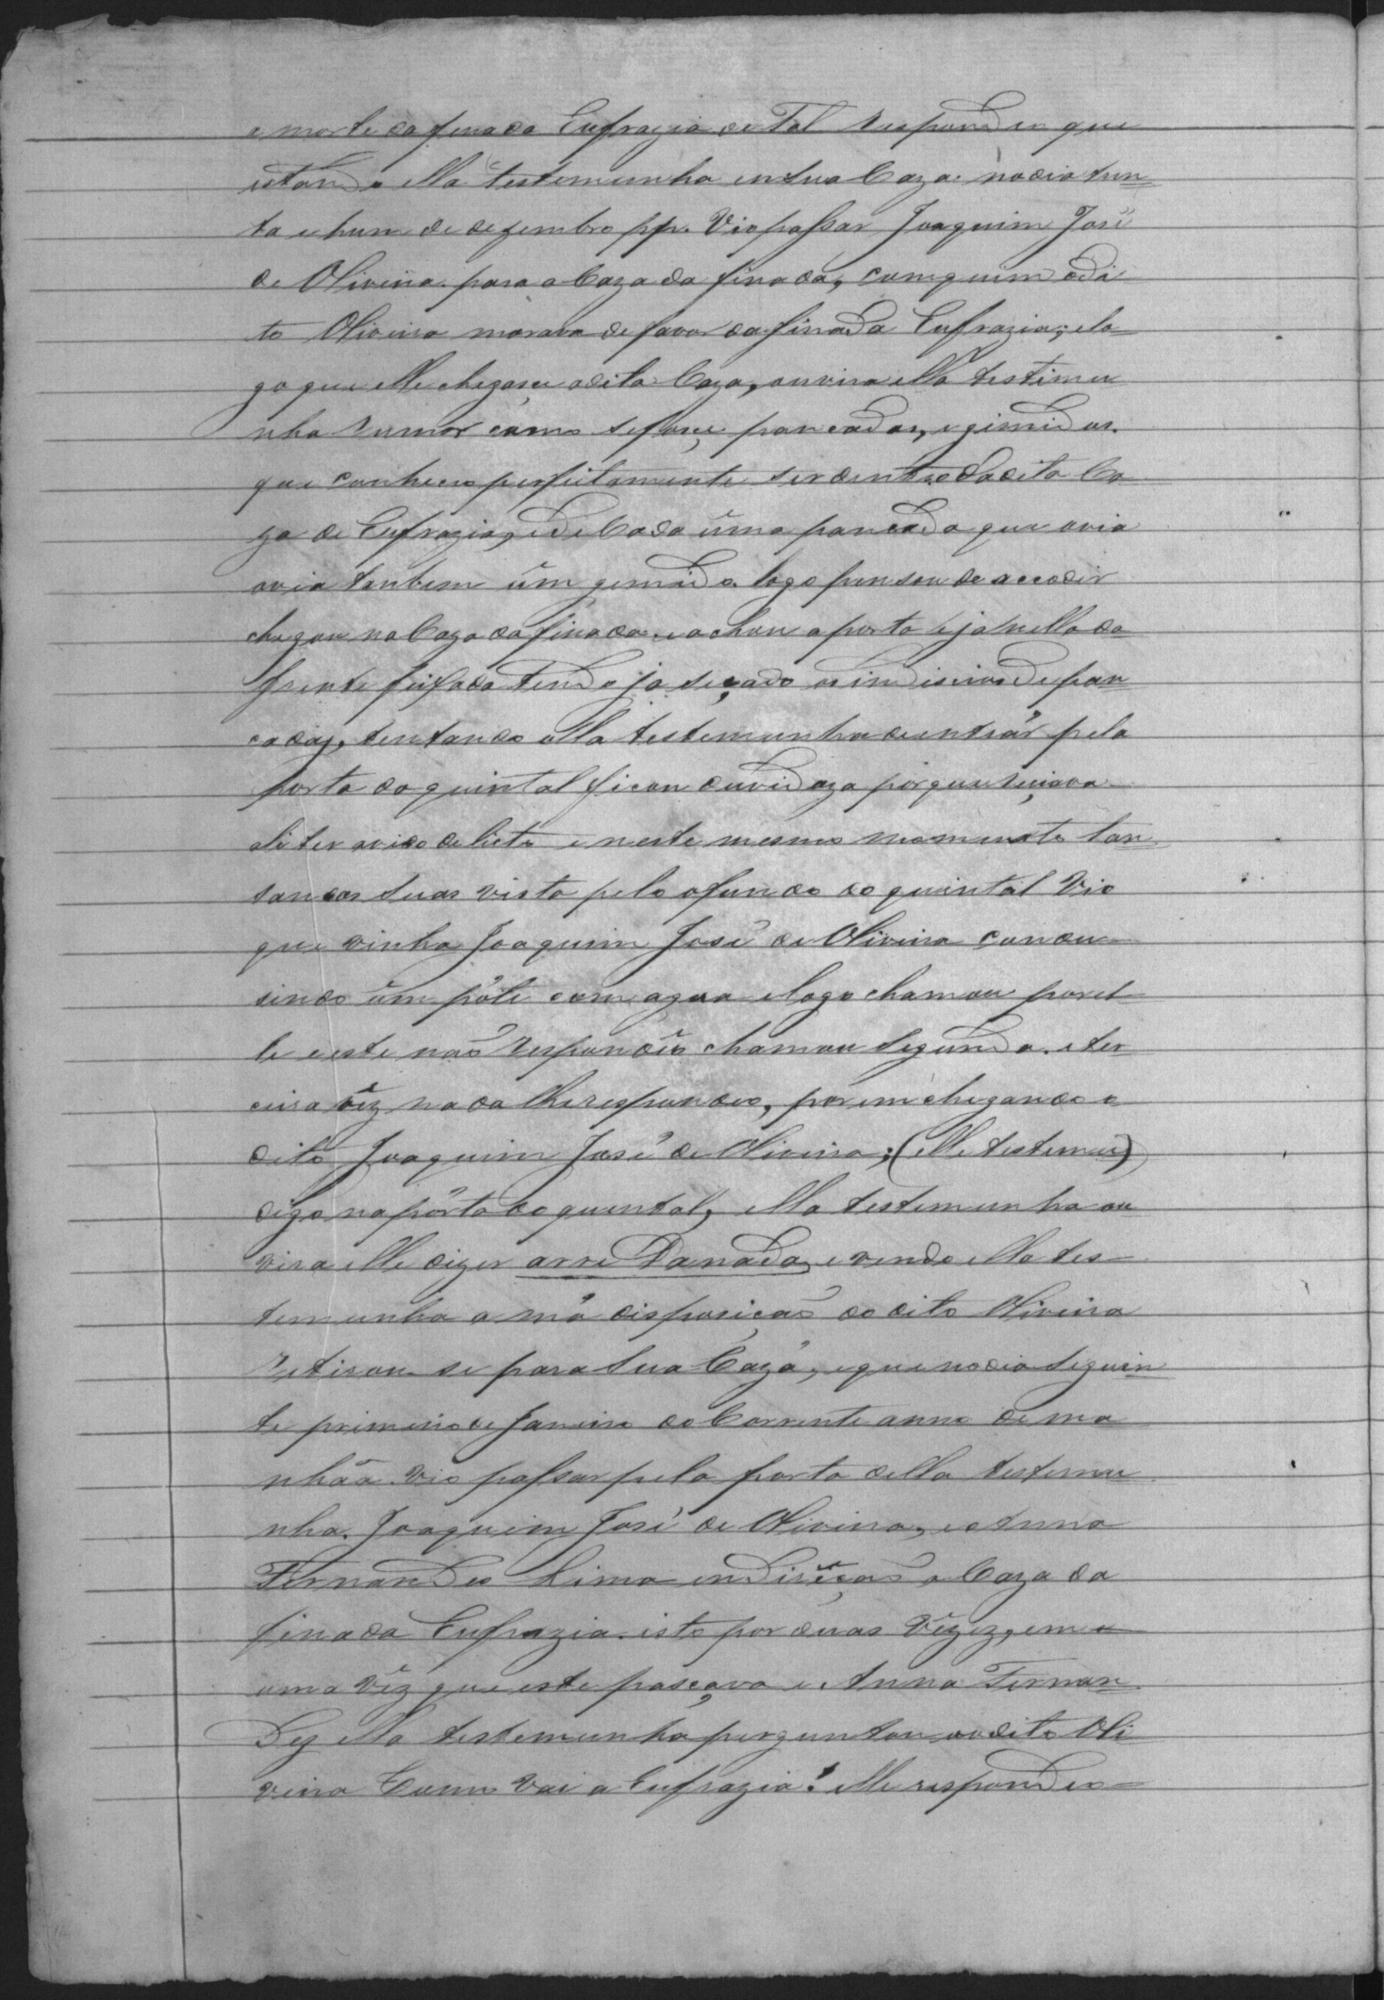 a morte da finada Eufrazia de Tal Respondeu que
estando ella testemunha em sua Caza. no dia trin-
ta e hum de dezembro pp. Vio passar Joaquim José
de Oliveira. para a Caza da finada, com quem o di
to Oliveira morava de favor da finada Eufrazia; e lo
go que elle chegara a dita Caza, ouvira ella testimu
nha Rumor como se fosçe pancadas, e gimidos.
que conheceo perfeitamente ser dentro da dita Ca
za de Eufrazia, e de Cada uma pancada que avia
avia tanbem um gemido. logo pensou de accodir
chegou na Caza da finada. e achou a porta e janella da
frente feixada tendo ja seçado os indicios de pan
cadas, tentando ella testemunha de entrár pela
porta do quintal ficou duvidoza porque
ali ter avido delicto e neste mesmo momento lan
sando as suas vista pelo o fundo do quintal Vio
que vinha Joaquim José de Oliveira condu
sindo um póte com agua e logo chamou por el
le e este naõ Respondeo chamou segunda. e ter
ceira vêz nada lhe respondeo, porem chegando o
dito Joaquim José de Oliveira; (elle testemu)
digo na pórta do quintal, ella testemunha ou
vira elle dizer arre Danada, e vendo ella tes-
temunha a má disposiçaõ do dito Oliveira
Retirou-se para sua Caza, e que no dia seguin
te primeiro de Janeiro do Corrente anno de ma
nhãa. Vio passar pela porta della testemu
nha. Joaquim José de Oliveira, e Anna
Fernandes Lima em direçaõ a Caza da
finada Eufrazia. isto por duas Vêzez, em
uma Vêz que este pasçava e Anna Fernan
Dez ella testemunha perguntou ao dito Oli
veira Como Vai a Eufrazia? elle respondeo